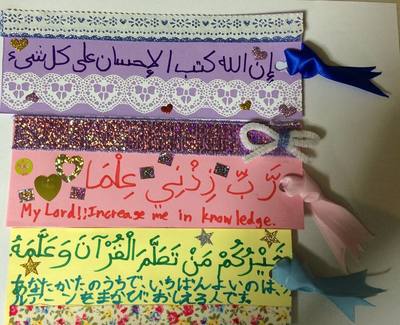 إن الله كتب الإحسان على كل شيء
رَّبِّ زِدْنِي عِلْمًا
My Lord!!Increase me in knowledge.
خَيْرُكُمْ مَنْ تَعَلَّمَ الْقُرْآنَ وَعَلَّمَهُ
あなたがたのうちで、いちばんよいのは、
ルアーンをまなびおしえる人です。